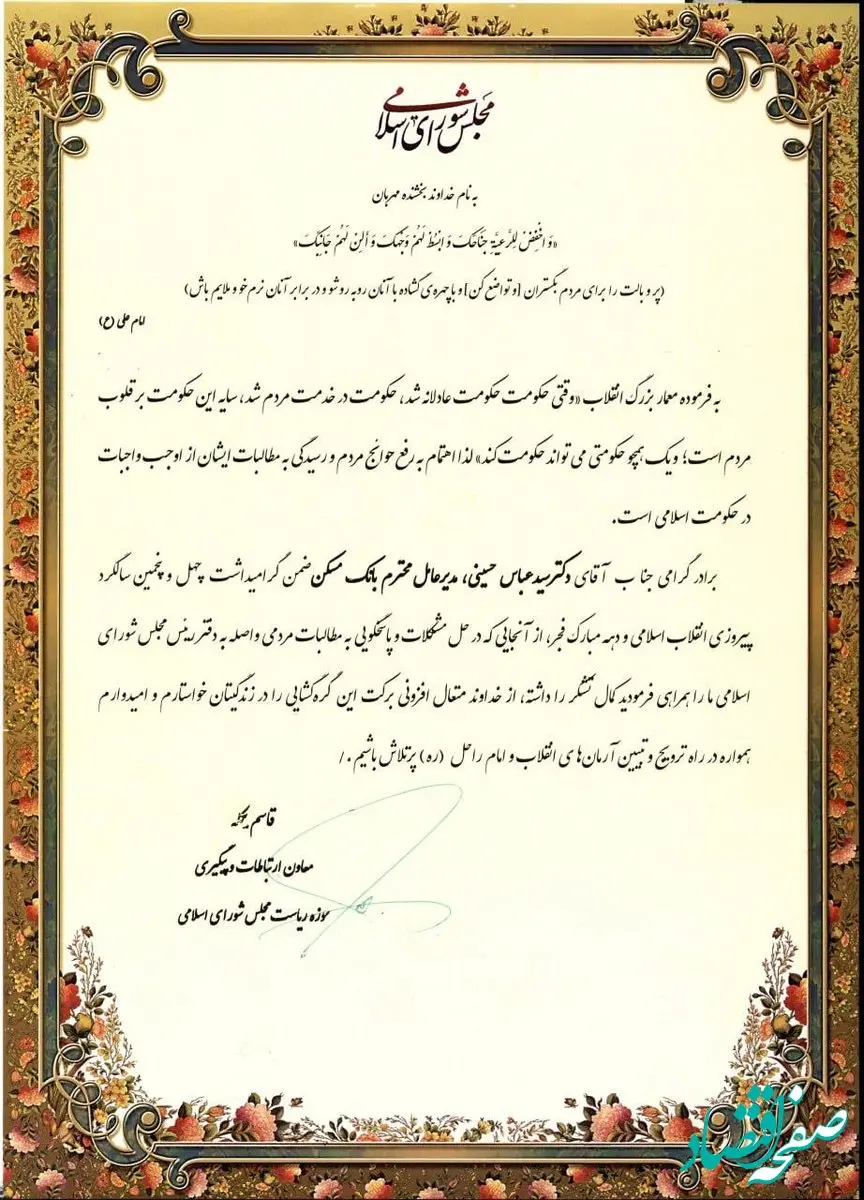 مجلس شورای اسلامی
به نام خداوند بخشنده مهربان
«وَ اخْفِضْ لِلرَّعِیَّةِ جَنَاحَکَ وَ ابْسُطْ لَهُمْ وَجْهَکَ وَ أَلِنْ لَهُمْ جَانِبَکَ»
(پر و بالت را برای مردم بگستران [و تواضع کن] و با چهره‌ی گشاده با آنان روبه رو شو و در برابر آنان نرم خو و ملایم باش)
امام علی (ع)
به فرموده معمار بزرگ انقلاب «وقتی حکومت حکومت عادلانه شد، حکومت در خدمت مردم شد، سایه این حکومت بر قلوب
مردم است؛ و یک همچو حکومتی می تواند حکومت کند» لذا اهتمام به رفع حوائج مردم و رسیدگی به مطالبات ایشان از اوجب واجبات
در حکومت اسلامی است.
برادر گرامی جناب آقای دکتر سید عباس حسینی، مدیرعامل محترم بانک مسکن ضمن گرامیداشت چهل و پنجمین سالگرد
پیروزی انقلاب اسلامی و دهه مبارک فجر، از آنجایی که در حل مشکلات و پاسخگویی به مطالبات مردمی واصله به دفتر رئیس مجلس شورای
اسلامی ما را همراهی فرمودید کمال تشکر را داشته، از خداوند متعال افزونی برکت این گره گشایی را در زندگیتان خواستارم و امیدوارم
همواره در راه ترویج و تبیین آرمان های انقلاب و امام راحل (ره) پرتلاش باشیم ./
قاسم
معاون ارتباطات و پیگیری
حوزه ریاست مجلس شورای اسلامی
صفحه اقتصاد